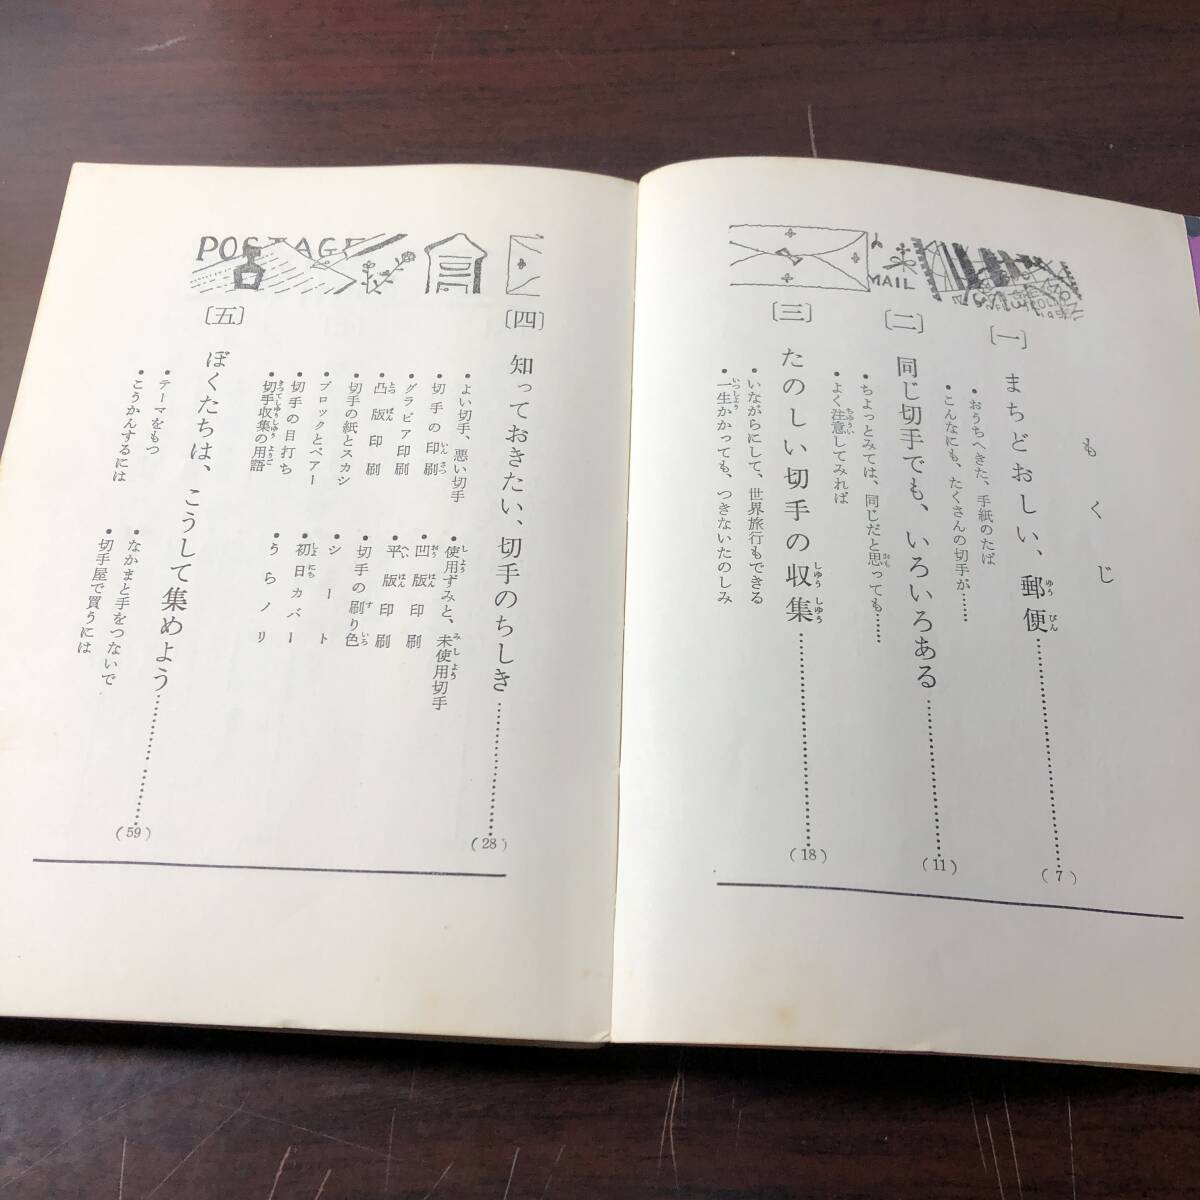 もくじ
MAIL
〔一〕 まちどおしい、郵便……………(7)
・おうちへきた、手紙のたば
・こんなにも、たくさんの切手が……
〔二〕 同じ切手でも、いろいろある……………(11)
・ちょっとみては、同じだと思っても……
・よく注意してみれば
〔三〕 たのしい切手の収集……………(18)
・いながらにして、世界旅行もできる
・一生かかっても、つきないたのしみ
POSTAGE
〔四〕 知っておきたい、切手のちしき……………(28)
・よい切手、悪い切手
・使用ずみと、未使用切手
・切手の印刷
・凹版印刷
・グラビア印刷
・平版印刷
・凸版印刷
・切手の刷り色
・切手の紙とスカシ
・シート
・ブロックとペアー
・初日カバー
・切手の目打ち
・うらノリ
・切手収集の用語
〔五〕 ぼくたちは、こうして集めよう……………(59)
・テーマをもつ
・なかまと手をつないで
・こうかんするには
・切手屋で買うには